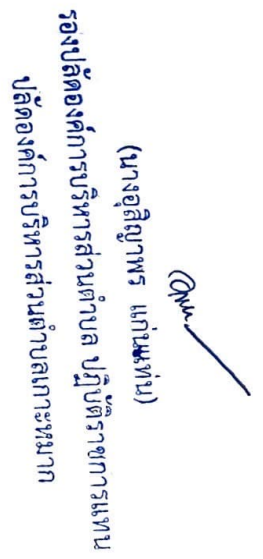 (นางอุสิญาพร แก่นแท่น)
รองปลัดองค์การบริหารส่วนตำบล ปฏิบัติราชการแทน
ปลัดองค์การบริหารส่วนตำบลเกาะหมาก